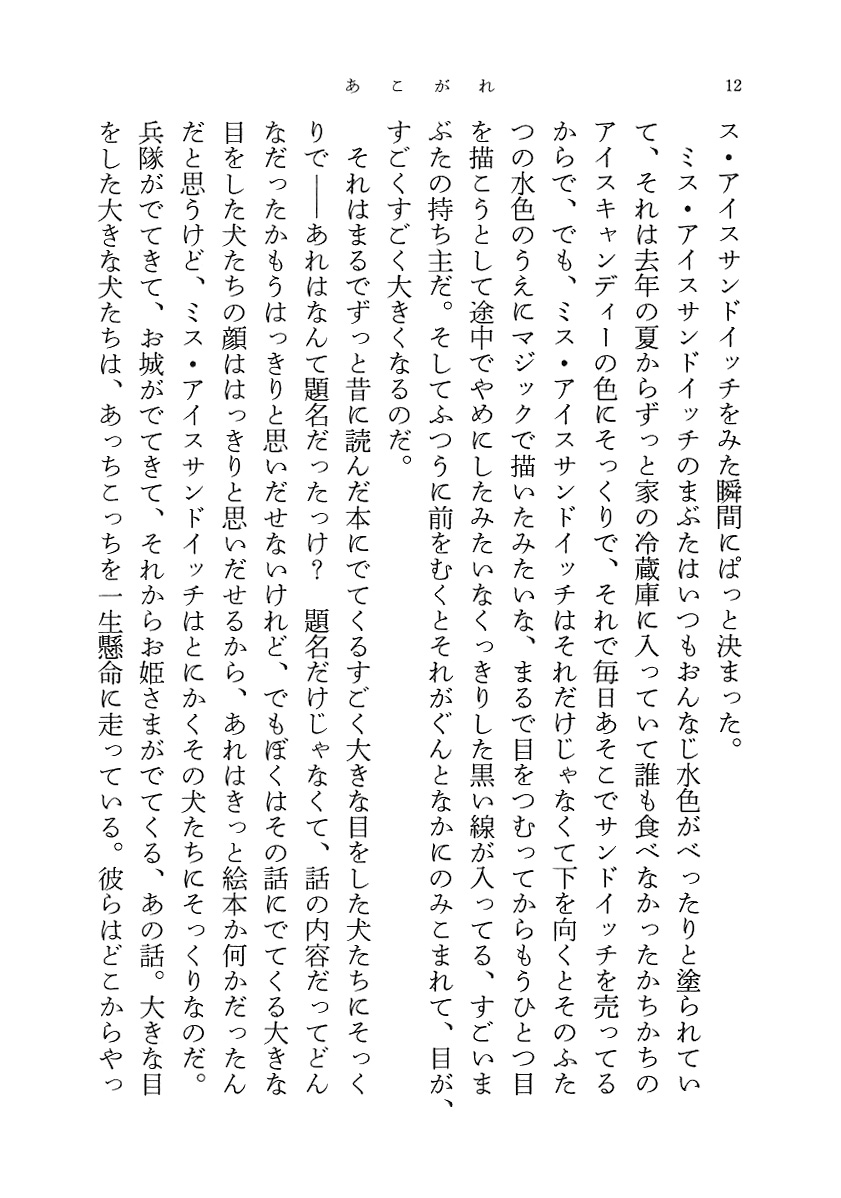 あこがれ
12
ス・アイスサンドイッチをみた瞬間にぱっと決まった。
　ミス・アイスサンドイッチのまぶたはいつもおんなじ水色がべったりと塗られてい
て、それは去年の夏からずっと家の冷蔵庫に入っていて誰も食べなかったかちかちの
アイスキャンディーの色にそっくりで、それで毎日あそこでサンドイッチを売ってる
からで、でも、ミス・アイスサンドイッチはそれだけじゃなくて下を向くとそのふた
つの水色のうえにマジックで描いたみたいな、まるで目をつむってからもうひとつ目
を描こうとして途中でやめにしたみたいなくっきりした黒い線が入ってる、すごいま
ぶたの持ち主だ。そしてふつうに前をむくとそれがぐんとなかにのみこまれて、目が、
すごくすごく大きくなるのだ。
　それはまるでずっと昔に読んだ本にでてくるすごく大きな目をした犬たちにそっく
りで――あれはなんて題名だったっけ？　題名だけじゃなくて、話の内容だってどん
なだったかもうはっきりと思いだせないけれど、でもぼくはその話にでてくる大きな
目をした犬たちの顔ははっきりと思いだせるから、あれはきっと絵本か何かだったん
だと思うけど、ミス・アイスサンドイッチはとにかくその犬たちにそっくりなのだ。
兵隊がでてきて、お城がでてきて、それからお姫さまがでてくる、あの話。大きな目
をした大きな犬たちは、あっちこっちを一生懸命に走っている。彼らはどこからやっ